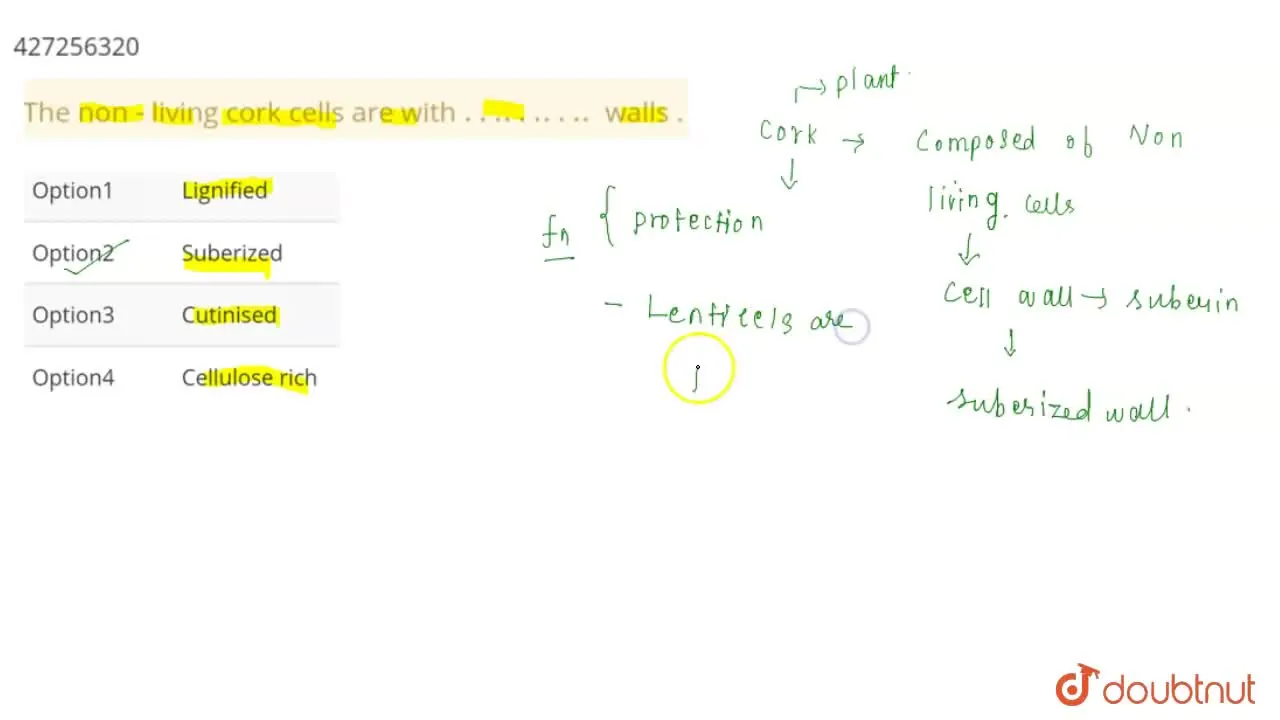 427256320
The non - living cork cells are with . . .. . .. . .. walls .
Option1 Lignified
Option2 Suberized
Option3 Cutinised
Option4 Cellulose rich
→ plant
Cork → Composed of Non
living cells
fn { protection
cell wall → suberin
- Lenticels are
suberized wall.
doubtnut